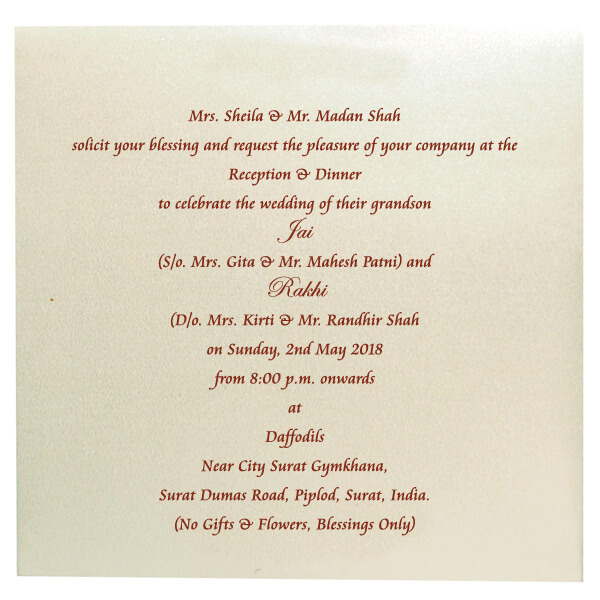 Mrs. Sheila & Mr. Madan Shah
solicit your blessing and request the pleasure of your company at the
Reception & Dinner
to celebrate the wedding of their grandson
Jai
(S/o. Mrs. Gita & Mr. Mahesh Patni) and
Rakhi
(D/o. Mrs. Kirti & Mr. Randhir Shah
on Sunday, 2nd May 2018
from 8:00 p.m. onwards
at
Daffodils
Near City Surat Gymkhana,
Surat Dumas Road, Piplod, Surat, India.
(No Gifts & Flowers, Blessings Only)